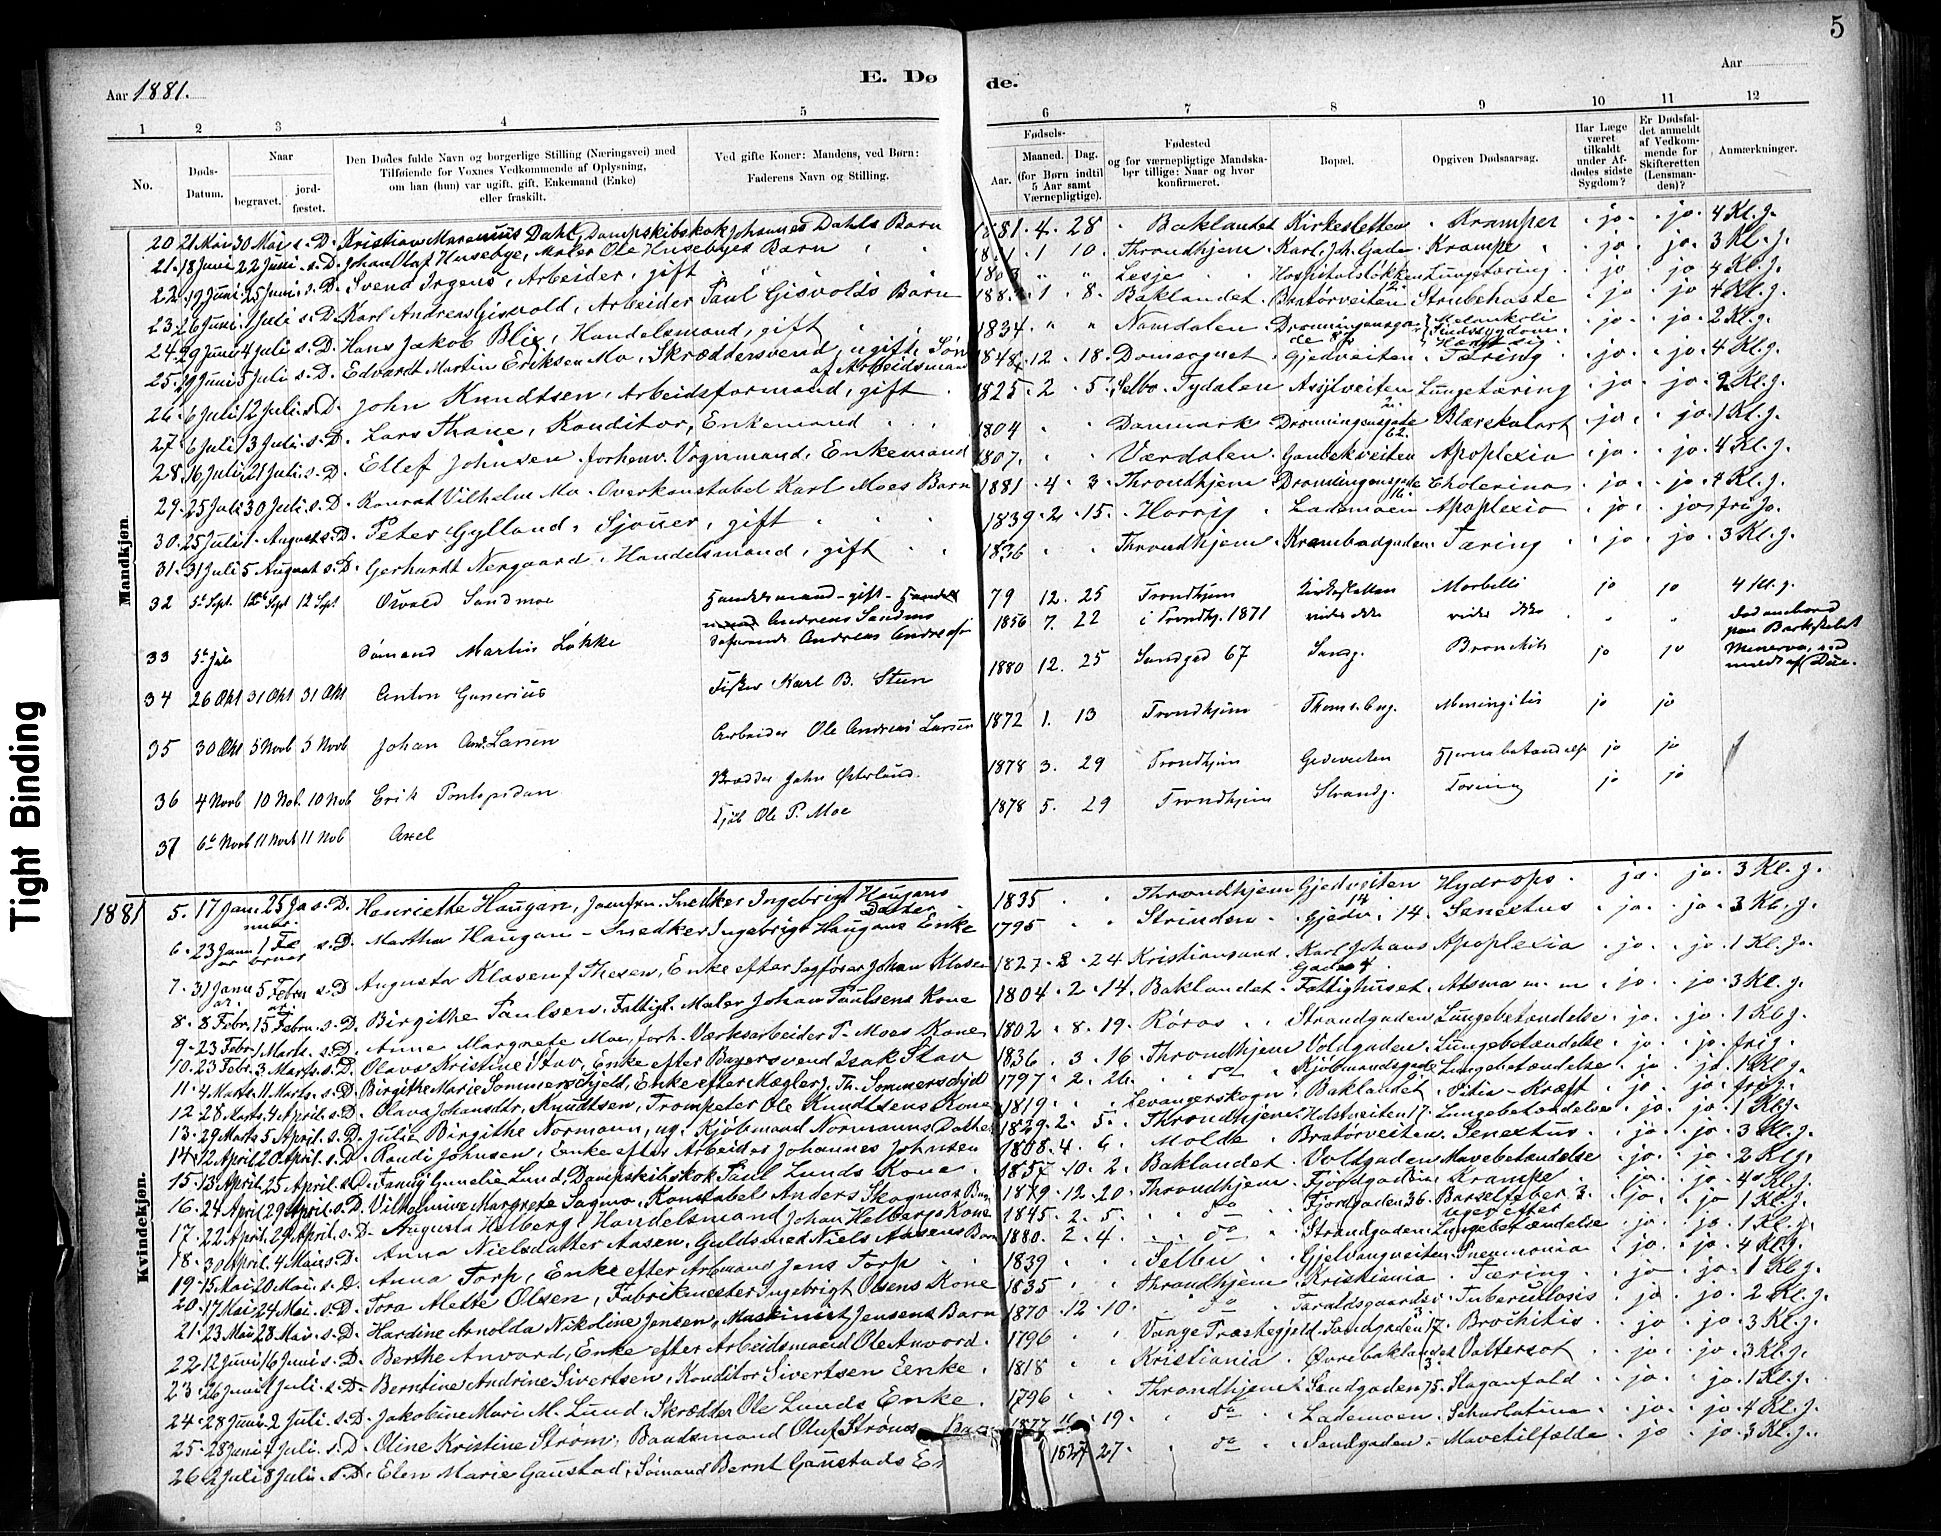 5
Aar 1881.
E. Dø
de.
Aar
1 2 3 4 5 6 7 8 9 10 11 12
No.
Døds-Datum.
Naar
begravet.
jord-fæstet.
Den Dødes fulde Navn og borgerlige Stilling (Næringsvei) med
Tilføiende for Voxnes Vedkommende af Oplysning,
om han (hun) var ugift, gift, Enkemand (Enke)
eller fraskilt.
Ved gifte Koner: Mandens, ved Børn:
Faderens Navn og Stilling.
Fødsels-
Aar.
Maaned. Dag.
(for Børn indtil
5 Aar samt
Værnepligtige).
Fødested
og for værnepligtige Mandska-
ber tillige: Naar og hvor
konfirmeret.
Bopæl.
Opgiven Dødsaarsag.
Har Læge
været
tilkaldt
under Af-
dødes sidste
Sygdom?
Er Dødsfal-
det anmeldt
af Vedkom-
mende for
Skifteretten
(Lensman-
den)?
Anmærkninger.
Mandkjøn.
20 21 Mai 30 Mai s. D. Kristian Marenius Dahl, Dampskibskok Johannes Dahls Barn 1881. 4. 28 Baklandet Kirkesletten Kramper jo. jo. 4 Kl. j.
21. 18 Juni 22 Juni s. D. Johan Olaf Husebye, Maler Ole Husebyes Barn 1 10. Throndhjem Karl. Joh. Gade Krampe jo jo. 3 Kl. j.
22. 19 Juni 25 Juni s. D. Svend Irgens, Arbeider, gift Lesje Hospitalsløkken Lungetæring jo jo 4 Kl. j.
23. 26 Juni 1 Juli s. D. Karl Andreas Gisvold, Arbeider Paul Gisvolds Barn 1. 8. Baklandet Bratørveiten 12. Strubehoste jo jo 4 Kl. j.
24. 29 Juni 4 Juli s. D. Hans Jakob Blix, Handelsmand, gift 1834 Namdalen Dronningensgade Melankoli Sindssygdom jo. jo. 2 Kl. j.
25. 29 Juni 5 Juli s. D. Edvardt Martin Eriksen Mo, Skræddersvend, ugift, Søn af Arbeidsmand 12. 18. Domsognet Gjedveiten Tæring jo. jo. 4 Kl. j.
26. 6 Juli 12 Juli s. D. John Knudtsen, Arbeidsformand, gift 1825. 2. 5. Selbo. Tydalen Asylveiten Lungetæring jo. jo. 2 Kl. j.
27. 6 Juli 13 Juli s. D. Lars Thane, Konditor, Enkemand 1804 Danmark Dronningensgade 62. Blærekatarh jo. jo. 1 Kl. j.
28 16 Juli 21 Juli s. D. Ellef Johnsen forhenv. Vognmand, Enkemand 1807. Værdalen Gaubekveiten Apoplexia jo. jo. 4 Kl. j.
29. 25 Juli 30 Juli s. D. Konrad Vilhelm Mo. Overkonstabel Karl Moes Barn 1881. 4. 3. Throndhjem Dronningensgade 16. Cholerina jo. jo. 4 Kl. j.
30. 25 Juli 1 August s. D. Peter Gylland, Sjouer, gift 1839. 2. 15. Ladamoen Apoplexia jo jo
31. 31 Juli 5 August s. D. Gerhardt Nergaard, Handelsmand, gift 1836 Throndhjem Krambodgaden Tæring jo jo 3 Kl. j.
32 5te Sept. 12te Sept 12 Sept Osvald Sandmoe Andreas Sandmo 79 12. 25 Trondhjem Kirkesletten Morbilli jo jo 4 Kl. j.
33 5te Juli Sømand Martin Løkke Andreas Andresen 1856 7. 22 i Trondhj. 1871 vides ikke vides ikke
34 26 Okt 31 Okt 31 Okt Anton Gunerius Fisker Karl B. Steen 1880 12. 25 Sandgad 67 Sandg. Bronchitis jo jo
35 30 Okt 5 Novb 5 Novb Johan And. Larsen Arbeider Ole Andreas Larsen 1872 1. 13 Trondhjem Meningitis jo jo
36 4 Novb 10 Nob. 10 Nob Erik Pontopidan John Østerlund. 1878 3. 29 Trondhjem Gedeveiten Hjernebetændelse jo jo
37 6te Novb 11 Novb 11 Nob Axel Ole P. Moe 1878 5. 29 Trondhjem Strandg. Tæring jo jo
Kvindekjøn.
1881 5. 17 Januar 25 Ja s. D. Henriette Haugan, Jomfru. Snedker Ingebrigt Haugans Datter 1835 Throndhjem Gjedveiten 14 Hydrops. jo. jo. 3 Kl. j.
6. 23 Januar 1 Februar s. D. Martha Haugan - Snedker Ingebrigt Haugans Enke 1795 Strinden Gjedv. 14. Senectus jo. jo. 3 Kl. j.
7. 31 Januar 5 Februar s. D. Augusta Klasen f Thesen, Enke efter Sagfører Johan Klasen 1827. 2. 24 Kristiansund Karl Johans Gade 4. Apoplexia jo. jo. 1 Kl. j.
8. 8 Febr. 15 Febru. s. D. Birgithe Paulsen, Fattigl. Maler Johan Paulsens Kone 1804. 2. 14. Baklandet Fattighuset jo. jo. 3 Kl. j.
9. 23 Febr. 1 Marts. s. D. Anne Margrete Moe, forh. Værksarbeider P. Moes Kone 1802. 8. 19. Røros Strandgaden Lungebetændelse jo. jo. 1 Kl. j.
10. 23 Febr. 3 Marts. s. D. Olava Kristine Stav, Enke efter Bagersvend Isak Stav 1836. 3. 16. Throndhjem Voldgaden. Lungebetændelse jo. jo. fri j.
11. 4 Marts. 11 Marts. s. D. Birgithe Marie Sommerschjeld, Enke efter Mægler J. Th. Sommerschjeld 1797. 2. 26. do Kjøbmandsgade Lungebetændelse jo. jo. 1 Kl. j.
12 28 Marts. 4 April s. D. Olava Johansdtr. Knudtsen, Trompeter Ole Knudtsens Kone 1819. Levangerskogn Baklandet Vitia - Kræft jo. jo. fri j.
13. 29 Marts 5 April. s. D. Julie Birgithe Normann, ug. Kjøbmand Normanns Datter 1829. 2. 5. Throndhjem Holstveiten 17. Lungebetændelse jo. jo. 1 Kl. j.
14. 12 April 20 April. s. D. Randi Johnsen, Enke efter Arbeider Johannes Johnsen 1808. 4. 6. Molde Bratørveiten. Senectus. jo. jo. 3 Kl. j.
15. 13 April. 25 April. s. D. Fanny Lund, Dampskibskok Paul Lunds Kone 1857. 10. 2. Baklandet Voldgaden Mavebetændelse jo. jo. 2 Kl. j.
16. 24 April 29 April. s. D. Vilhelmine Margrete Konstabel Anders 1879. 12. 20. Throndhjem Fjordgaden Krampe jo. jo. 4 Kl. j.
17. 22 April. 29 April. s. D. Augusta Helberg, Handelsmand Johan Helbergs Kone 1845. 2. 5. do Fjordgaden 36. Barselfeber 3. uger efter jo. jo 1 Kl. j.
18. 30 April. 4 Mai s. D. Anna Nielsdatter Aasen. Guldsmed Niels Aasens Barn 1880. 2. 4. do Strandgaden Lungebetændelse jo. jo. 1 Kl. j.
19. 15 Mai 20 Mai. s. D. Anna Torp, Enke efter Arbmand Jens Torp 1839 Selbu Gjelvangveiten Pneumonia jo. jo. 4 Kl. j.
20. 17 Mai 24 Mai. s. D. Tora Mette Olsen, Fabrikmester Ingebrigt Olsens Kone 1835 Throndhjem Kristiania Tæring jo jo. 1 Kl. j.
21. 23 Mai 28 Mai. s. D. Hardine Arnolda Nikoline Jensen, Maskinist Jensens Barn 1870. 12. 10. do Taraldsgaardsv. 3. Tuberculosis jo jo. 2 Kl. j.
22 12 Juni 16 Juni s. D. Berthe Anvord, Enke efter Arbeidsmand Ole Anvord. 1796 Vange Præstegjeld Sandgaden 17. Brochitis jo jo. 3 Kl. j.
23. 26 Juni 1 Juli. s. D. Berntine Andrine Sivertsen, Konditor Sivertsen Eenke. 1818 Kristiania Øvrebaklandet 3. Vattersot jo. jo. 3 Kl. j.
24. 28 Juni. 2 Juli. s. D. Jakobine Mari M. Lund. Skrædder Ole Lunds Enke. 1796 Throndhjem Sandgaden 75. Slaganfald jo. jo. 1 Kl. j.
25. 28 Juni 4 Juli. s. D. Oline Kristine Strøm, Baadsmand Oluf Strøms Barn 1877 11. 19. do Lademoen Scharlatina jo. jo. 4 Kl. j.
26. 2 Juli 8 Juli. s. D. Elen Marie Gaustad, Sømand Bernt Gaustads E 27. do Sandgaden Mavetilfælde jo jo. 3 Kl. j.
Tight Binding